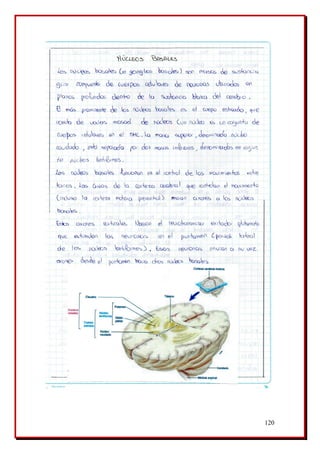 NÚCLEOS BASALES
Los núcleos basales (o ganglios basales) son masas de sustancia
gris compuesta de cuerpos celulares de neuronas situados en
planos profundos dentro de la sustancia blanca del cerebro.
El más prominente de los núcleos basales es el cuerpo estriado, que
consta de varias masas de núcleos (un núcleo es un conjunto de
cuerpos celulares en el SNC. La masa superior, denominada núcleo
caudado, está separada por dos masas inferiores, denominadas en conjunto
núcleos lentiformes.
Los núcleos basales funcionan en el control de los movimientos
Las áreas de la corteza cerebral que controlan el movimiento
(incluso la corteza motora precentral) envían axones a los núcleos
basales.
Estos axones corticales liberan el neurotransmisor excitador glutamato
que estimulan las neuronas en el putamen (porción lateral
de los núcleos lentiformes), Estas neuronas envían a su vez
axones desde el putamen hacia otros núcleos basales.
Claustro
Tálamo
120